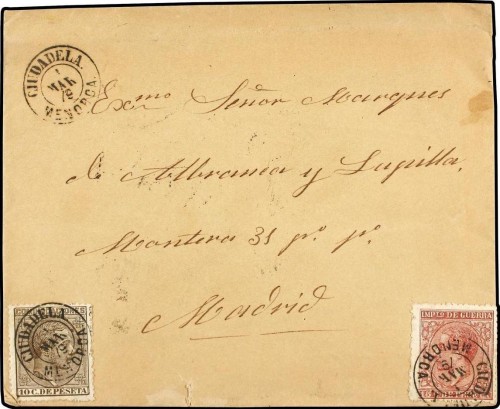 CIUDADELA.
1
MAR
79
MENORCA.
Exmo Señor Marques
de Albranca y Lupilla.
Montera 31 pº pº
Madrid
CIUDADELA
MAR
79
MENORCA
10 C. DE PESETA
IMPTO DE GUERRA
MAR
79
MENORCA